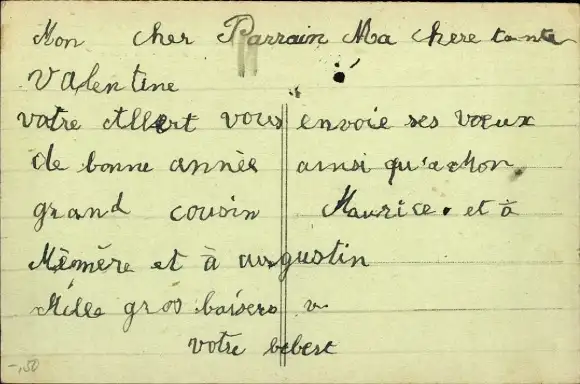 Mon cher Parrain Ma chere tante
Valentine
votre Albert vous envoie ses vœux
de bonne année ainsi qu'a Mon
grand cousin Maurice. et à
Mêmère et à augustin
Mille gros baisers
votre bebert
-,50